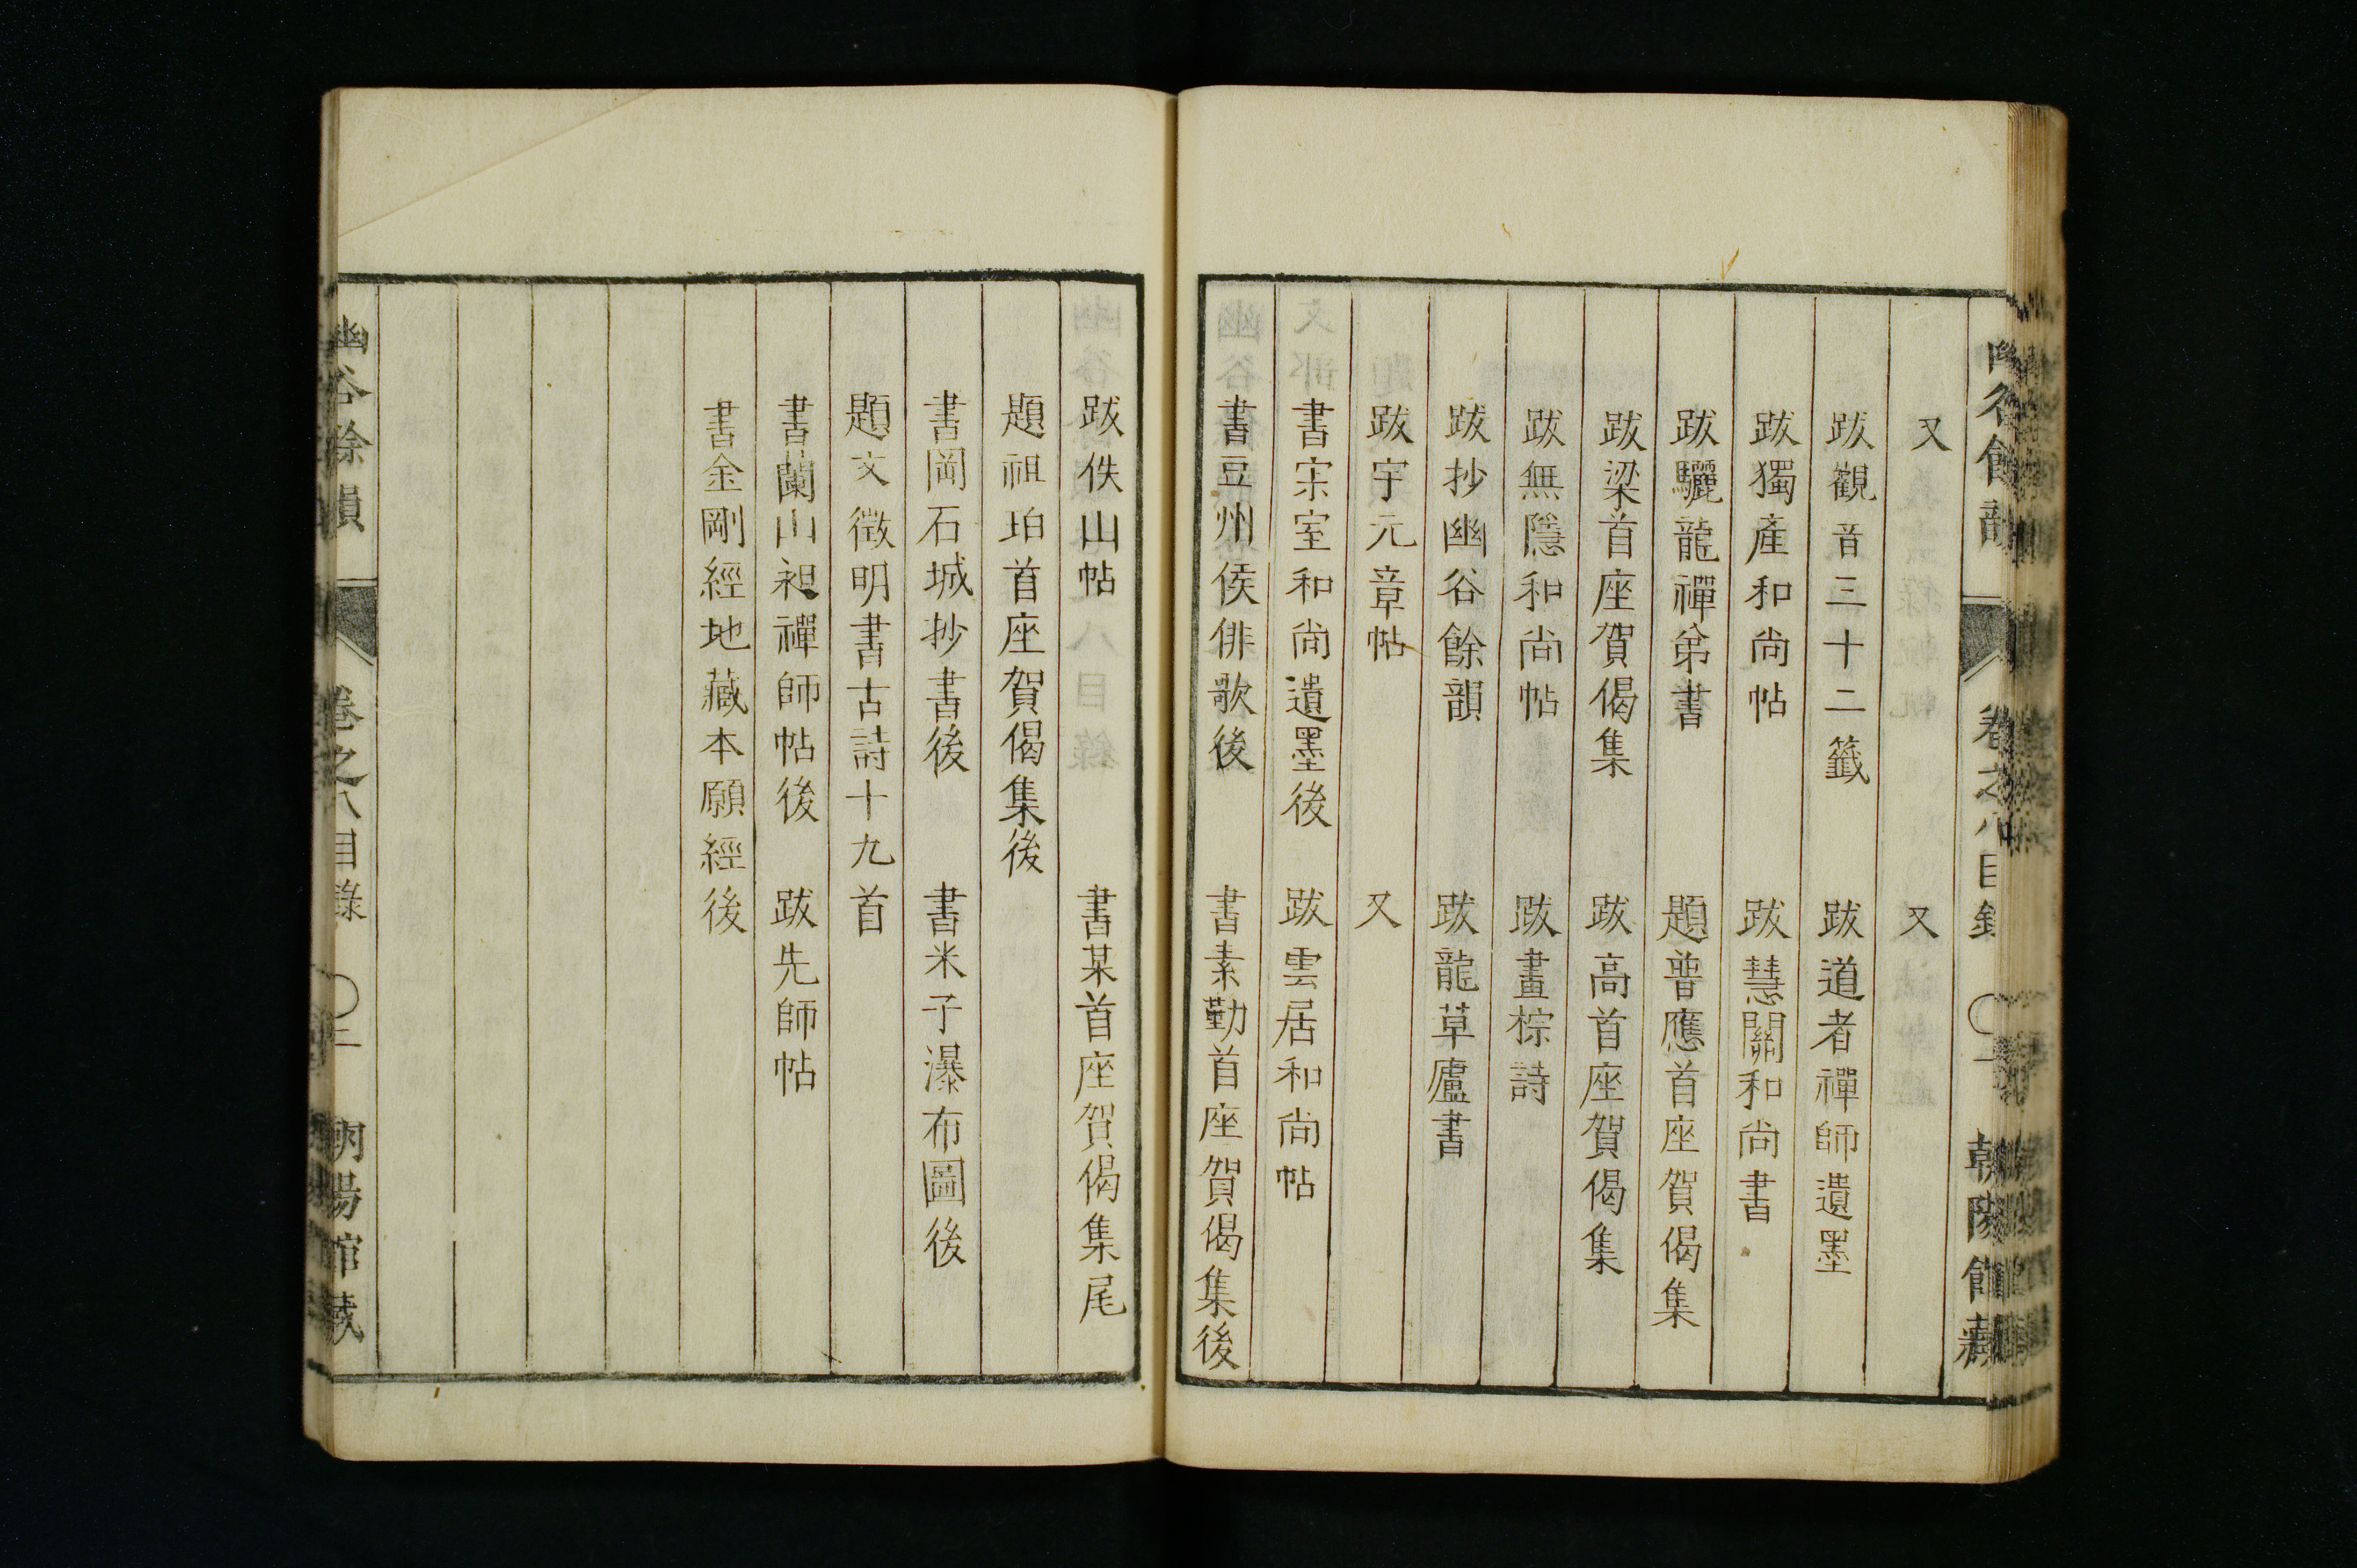 又　又
跋觀音三十二籤　跋道者禪師遺墨
跋獨產和尚帖　跋慧關和尚書
跋驪龍禪弟書　題普應首座賀偈集
跋梁首座賀偈集　跋高首座賀偈集
跋無隱和尚帖　跋畫棕詩
跋抄幽谷餘韻　跋龍草廬書
跋宇元章帖　又
書宗室和尚遺墨後　跋雲居和尚帖
書豆州侯俳歌後　書素勤首座賀偈集後
跋佚山帖　書某首座賀偈集尾
題祖珀首座賀偈集後
書岡石城抄書後　書米子瀑布圖後
題文徵明書古詩十九首
書蘭山昶禪師帖後　跋先師帖
書金剛經地藏本願經後
幽谷餘韻　卷之八目錄　〇二　朝陽館藏